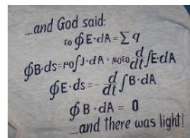 ....and God said:
ε₀∮E·dA=Σq
∮B·ds=μ₀∫J·dA+μ₀ε₀ d/dt ∫E·dA
∮E·ds=-d/dt ∫B·dA
∮B·dA=0
...and there was light!